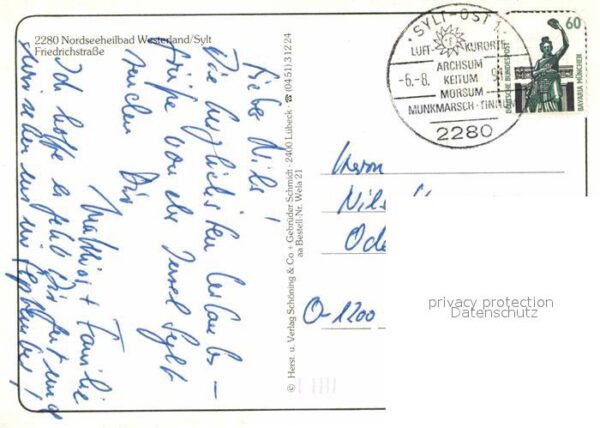 2280 Nordseeheilbad Westerland/Sylt
Friedrichstraße
Lieber Nils!
Die herzlichsten Urlaubs-
grüße von der Insel Sylt
senden Dir
Matthias + Familie
Ich hoffe es geht Dir gut und
wir sehen uns im September!
© Herst. u. Verlag Schöning & Co + Gebrüder Schmidt · 2400 Lübeck · ☎ (0451) 31224
aa Bestell-Nr. Wela 21
· SYLT-OST 1 ·
LUFT- KURORTE
ARCHSUM
-6.-8. KEITUM
MORSUM
MUNKMARSCH · TINNUM
2280
60
DEUTSCHE BUNDESPOST
BAVARIA MÜNCHEN
Herrn
Nils
Ode
O-1200
privacy protection
Datenschutz